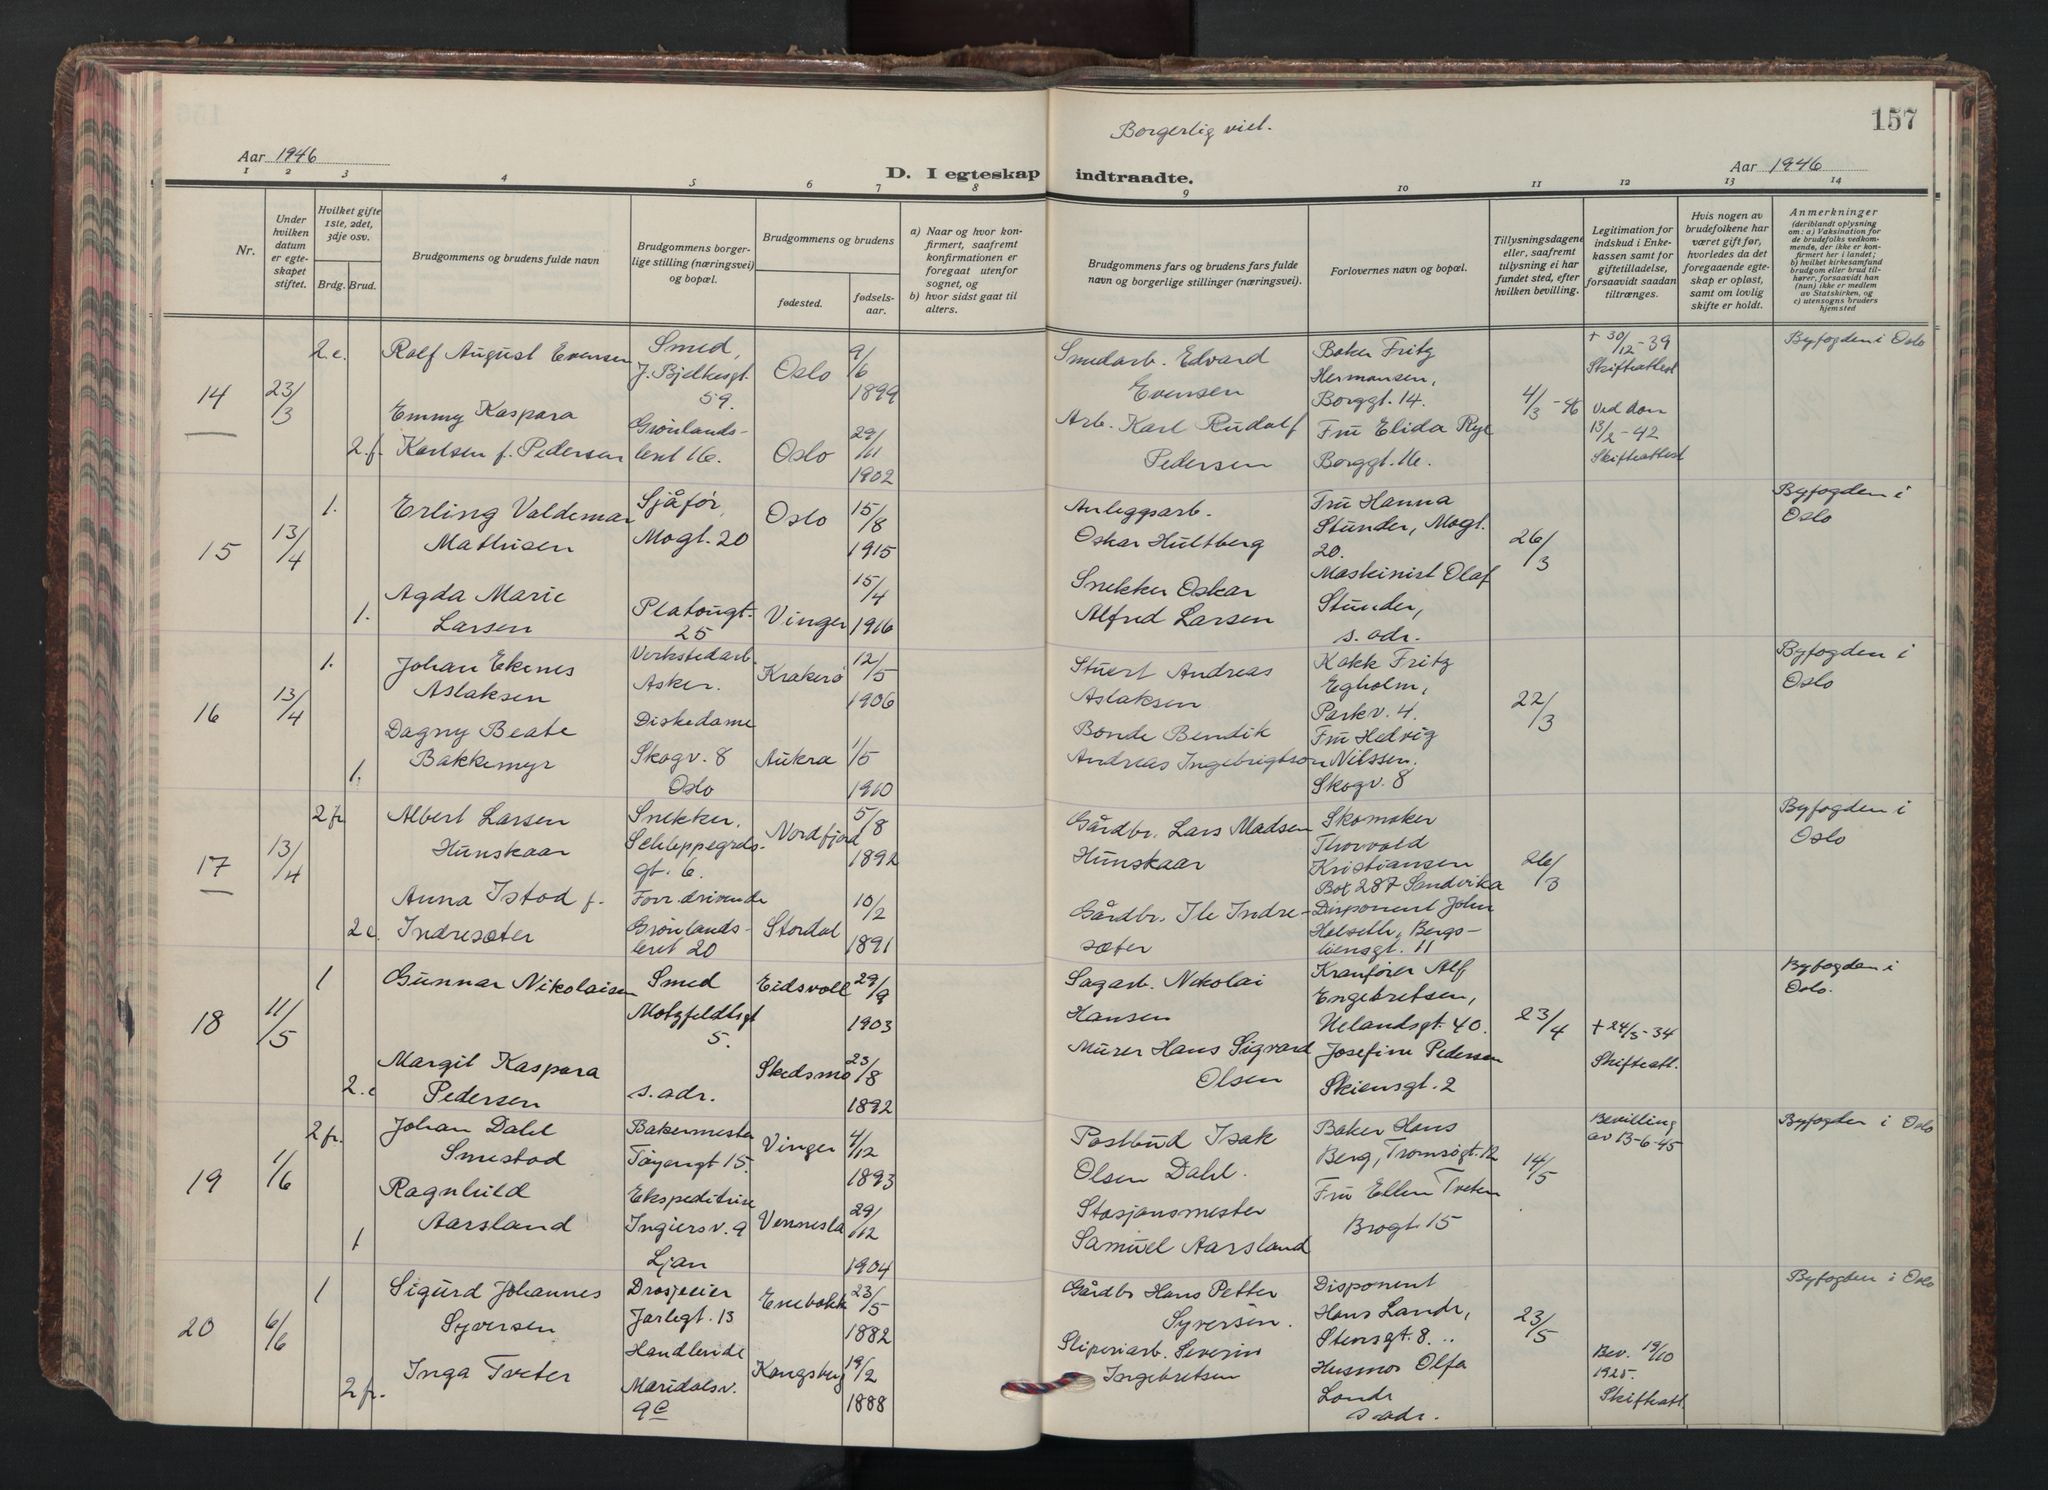 157
Borgerlig viet.
Aar 1946
D. I egteskap indtraadte.
Aar 1946
1 2 3 4 5 6 7 8 9 10 11 12 13 14
Nr.
Under hvilken datum er egteskapet stiftet.
Hvilket gifte 1ste, 2det, 3dje osv.
Brdg. Brud.
Brudgommens og brudens fulde navn
Brudgommens borgerlige stilling (næringsvei) og bopæl.
Brudgommens og brudens
fødested.
fødselsaar.
a) Naar og hvor konfirmert, saafremt konfirmationen er foregaat utenfor sognet, og
b) hvor sidst gaat til alters.
Brudgommens fars og brudens fars fulde navn og borgerlige stillinger (næringsvei).
Forlovernes navn og bopæl.
Tillysningsdagene eller, saafremt tillysning ei har fundet sted, efter hvilken bevilling.
Legitimation for indskud i Enkekassen samt for giftetilladelse, forsaavidt saadan tiltrænges.
Hvis nogen av brudefolkene har været gift før, hvorledes da det foregaaende egteskap er opløst, samt om lovlig skifte er holdt.
Anmerkninger
(deriblandt oplysning om: a) Vaksination for de brudefolks vedkommende, der ikke er konfirmert her i landet;
b) hvilket kirkesamfund brudgom eller brud tilhører, forsaavidt han (hun) ikke er medlem av Statskirken, og
c) utensogns bruders hjemsted
14
23/3
2.e.
Rolf August Evensen
Smed,
J. Bjelkesgt.
59.
Oslo
9/6
1899
Smedarb. Edvard
Evensen
Baker Fritz
Hermansen,
Borggt. 14.
4/3 - 46
+ 30/12 - 39
Skifteattest
Byfogden i Oslo
2.f.
Emmy Kaspara
Karlsen f. Pedersen
Grønlands-
leret 16.
Oslo
29/11
1902
Arb. Karl Rudolf
Pedersen
Fru Elida Rye
Borggt. 16.
Ved dom
13/2 - 42
Skifteattest
15
13/4
1.
Erling Valdemar
Mathisen
Sjåfør,
Mogt. 20
Oslo
15/8
1915
Anleggsarb.
Oskar Hultberg
Fru Hanna
Stunder, Mogt.
20.
26/3
Byfogden i
Oslo
1.
Agda Marie
Larsen
Platougt.
25
Vinger
15/4
1916
Snekker Oskar
Alfred Larsen
Maskinist Olaf
Stunder,
s. adr.
16
13/4
1.
Johan Ekenes
Aslaksen
Verkstedarb.
Asker.
Krakerø
12/5
1906
Stuert Andreas
Aslaksen
Kokk Fritz
Egholm,
Parkv. 4.
22/3
Byfogden i
Oslo
1.
Dagny Beate
Bakkemyr
Diskedame
Skogv. 8
Oslo
Aukra
1/5
1910
Bonde Bendik
Andreas Ingebrigtson
Fru Hedvig
Nilssen.
Skogv. 8
17
13/4
2 fr.
Albert Larsen
Hunskaar
Snekker,
Schleppegrds-
gt. 6.
Nordfjord
5/8
1892
Gårdbr. Lars Madsen
Hunskaar
Skomaker
Thorvald
Kristiansen
Box 287 Sandvika
26/3
Byfogden i
Oslo
2 e.
Anna Istad f.
Indresæter
Forr.drivende
Grønlands-
leret 20
Stordal
10/2
1891
Gårdbr. Ile Indre-
sæter
Disponent John
Helseth, Bergs-
liensgt. 11
18
11/5
1
Gunnar Nikolaisen
Smed
Motzfeldtsgt
5.
Eidsvoll
29/9
1903
Sagarb. Nikolai
Hansen
Kranfører Alf
Engebretsen,
Uelandsgt. 40.
23/4
+ 24/3 - 34
Skifteatt.
Byfogden i
Oslo.
2.e
Margit Kaspara
Pedersen
s. adr.
Skedsmo
23/8
1892
Murer Hans Sigvard
Olsen
Josefine Pedersen
Skiensgt. 2
19
1/6
2 fr.
Johan Dahl
Smestad
Bakermester
Tøyengt 15.
Vinger
4/12
1893
Postbud Isak
Olsen Dahl.
Baker Hans
Berg, Tromsøgt. 12
14/5
Bevilling
av 13-6-45
Byfogden i Oslo
1
Ragnhild
Aarsland
Ekspeditrise
Ingiersv. 9
Ljan
Vennesla
29/12
1904
Stasjonsmester
Samuel Aarsland
Fru Ellen Tveten
Brogt. 15
20
6/6
1
Sigurd Johannes
Syversen
Drosjeeier
Jarlegt. 13
Enebakk
23/5
1882
Gårdbr Hans Petter
Syversen.
Disponent
Hans Landr,
Stensgt. 8.
23/5
Byfogden i Oslo
2 fr.
Inga Tveter
Handlende
Maridalsv.
9c
Kongsberg
19/2
1888
Sliperiarb. Severin
Ingebretsen
Husmor Olfa
Landr
s. adr.
Bev. 19/10
1925.
Skifteatt.